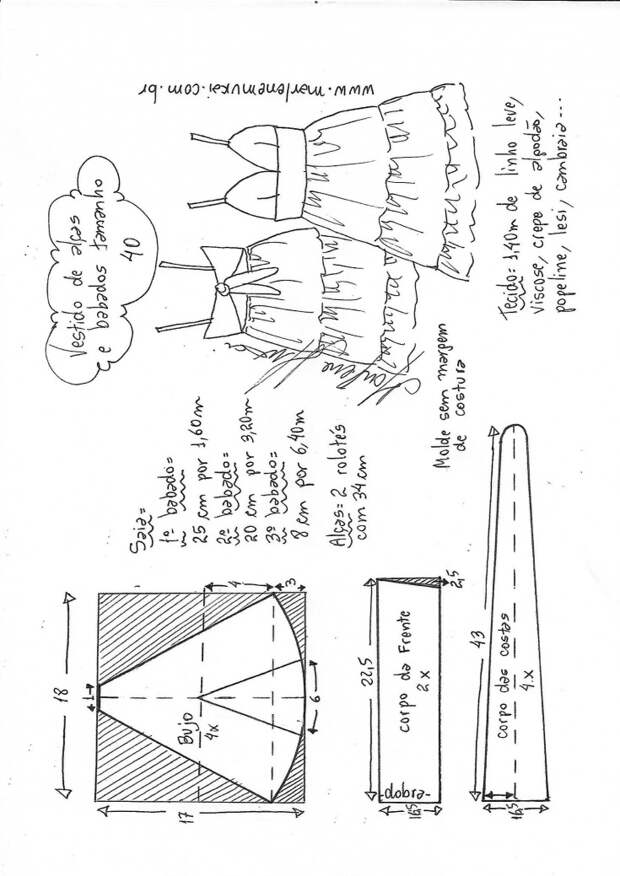 Vestido de alças
e babados tamanho
40
www.marlenemukai.com.br
Tecido= 1,40m de linho leve,
viscose, crepe de algodão,
popeline, lesi, cambraia...
Marlene Mukai
Saia=
1º babado=
25 cm por 1,60m
2º babado=
20 cm por 3,20m
3º babado=
8 cm por 6,40m
Alças= 2 rolotés
com 34cm
Molde sem margem
de costura
18
1
4
3
Bujo
4x
6
17
22,5
2,5
corpo da Frente
2x
-dobra-
43
corpo das costas
4x